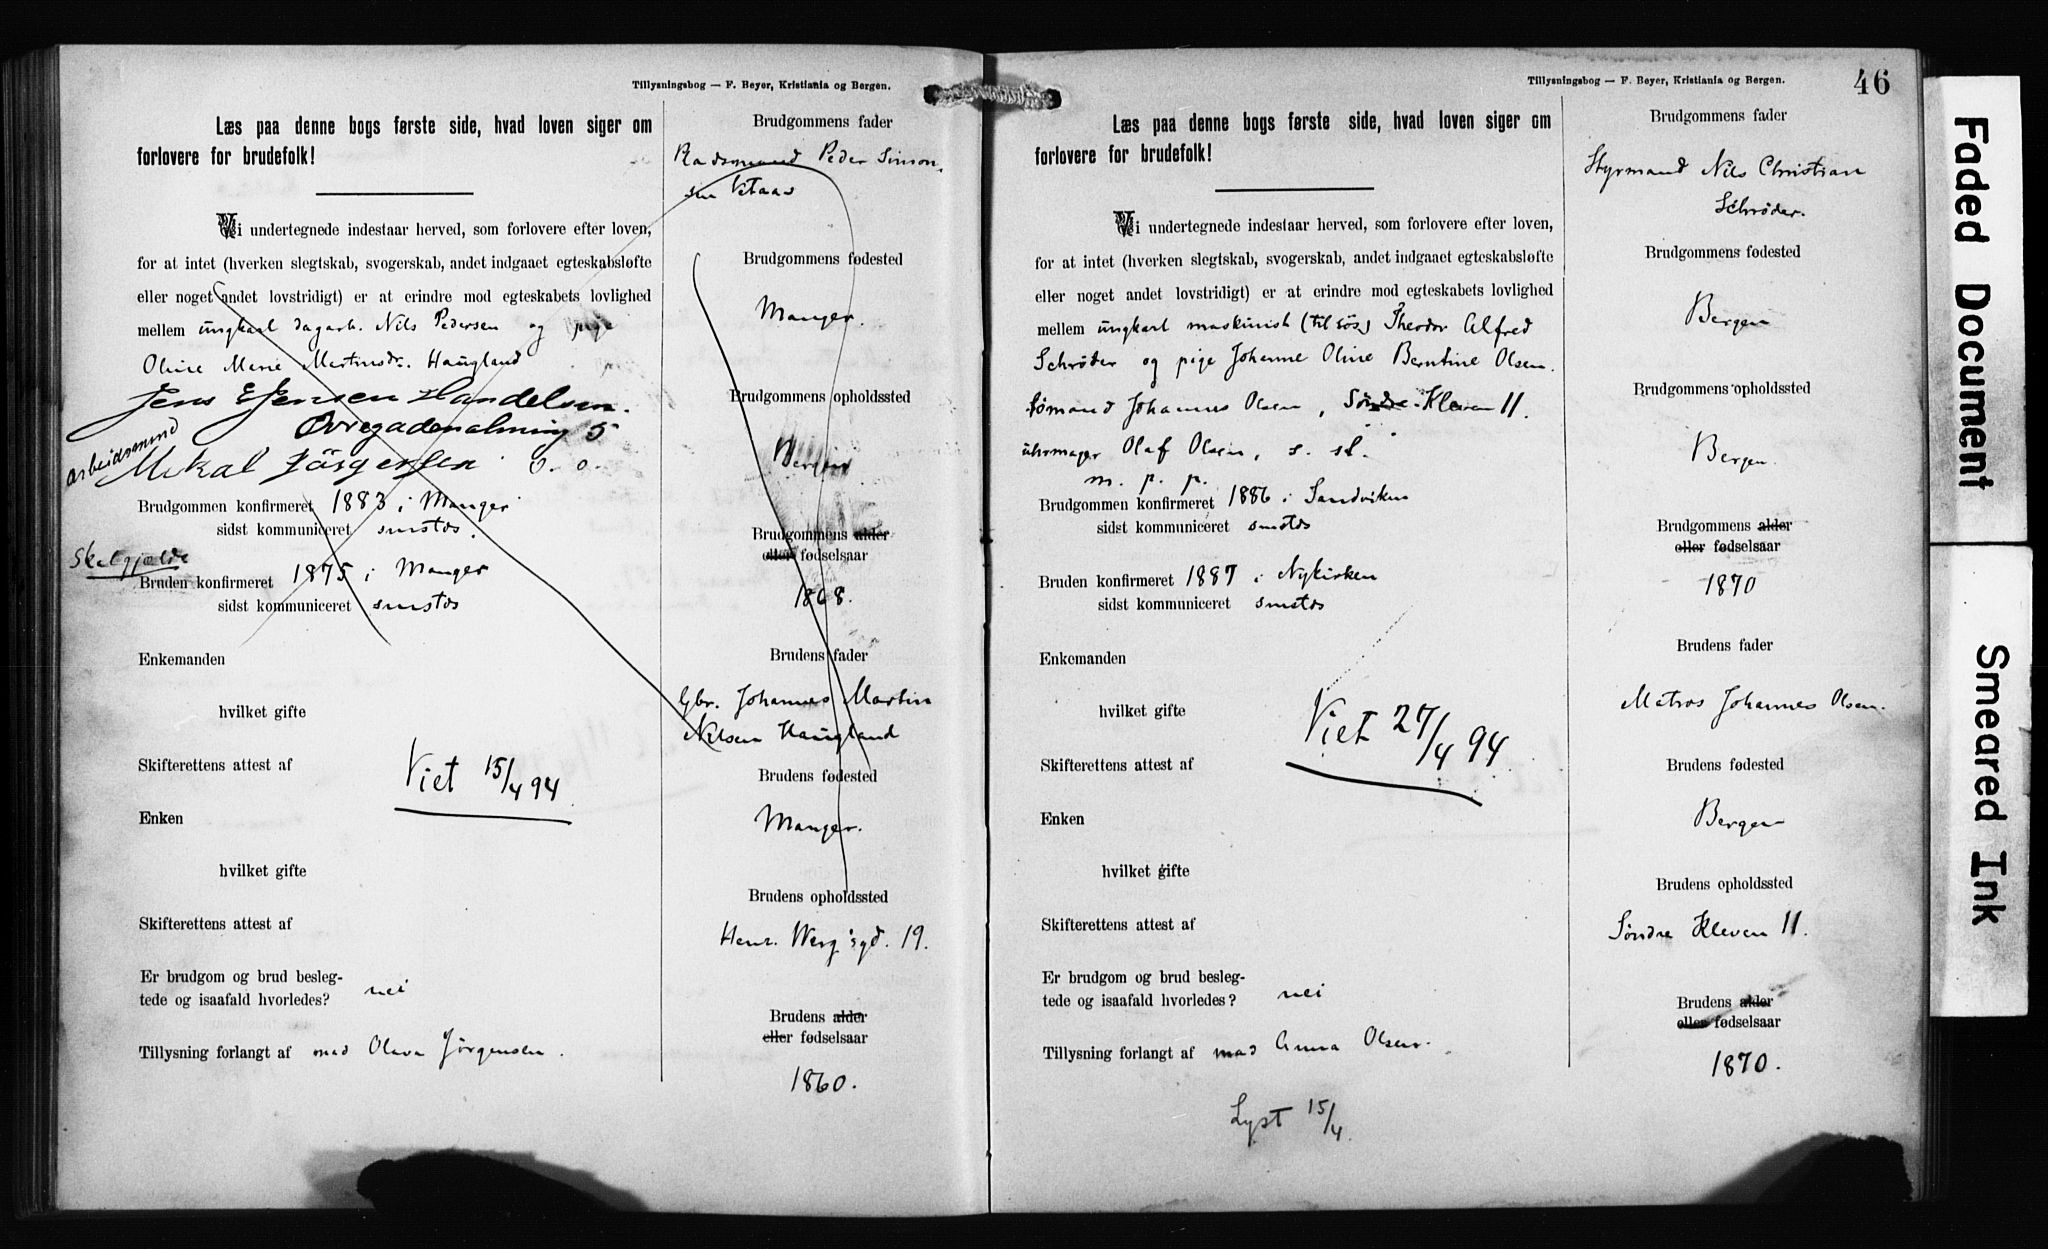 Tillysningsbog — F. Beyer, Kristiania og Bergen.
Læs paa denne bogs første side, hvad loven siger om
forlovere for brudefolk!
Vi undertegnede indestaar herved, som forlovere efter loven,
for at intet (hverken slegtskab, svogerskab, andet indgaaet egteskabsløfte
eller noget andet lovstridigt) er at erindre mod egteskabets lovlighed
mellem ungkarl dagarb. Nils Pedersen og pige
Oline Marie Martinsdr. Haugland
Jens E Jensen Handelsm.
Øvregadenalmning 5
arbeidsmand
Mikal Jörgensen
Brudgommen konfirmeret 1883 i Manger
sidst kommuniceret smstds.
Bruden konfirmeret 1875 i Manger
sidst kommuniceret smstds
Enkemanden
hvilket gifte
Skifterettens attest af
Viet 15/4 94
Enken
hvilket gifte
Skifterettens attest af
Er brudgom og brud besleg-
tede og isaafald hvorledes? nei
Tillysning forlangt af mad Olava Jørgensen.
Brudgommens fader
Peder Simon-
sen
Brudgommens fødested
Manger.
Brudgommens opholdssted
Bergen
Brudgommens alder
eller fødselsaar
1868.
Brudens fader
Gbr. Johannes Martin
Nilsen Haugland
Brudens fødested
Manger.
Brudens opholdssted
Henr. Werg'sgd. 19.
Brudens alder
eller fødselsaar
1860.
Tillysningsbog — F. Beyer, Kristiania og Bergen.
46
Læs paa denne bogs første side, hvad loven siger om
forlovere for brudefolk!
Vi undertegnede indestaar herved, som forlovere efter loven,
for at intet (hverken slegtskab, svogerskab, andet indgaaet egteskabsløfte
eller noget andet lovstridigt) er at erindre mod egteskabets lovlighed
mellem ungkarl maskinist (tilsøs) Theodor Alfred
Schrøder og pige Johanne Oline Berntine Olsen.
sømand Johannes Olsen, Søndre Kleven 11.
uhrmager Olaf Olsen, s. st.
m. p. p.
Brudgommen konfirmeret 1886 i Sandviken
sidst kommuniceret smstds
Bruden konfirmeret 1887 i Nykirken
sidst kommuniceret smstds
Enkemanden
hvilket gifte
Viet 27/4 94
Skifterettens attest af
Enken
hvilket gifte
Skifterettens attest af
Er brudgom og brud besleg-
tede og isaafald hvorledes? nei
Tillysning forlangt af mad Anna Olsen.
Lyst 15/4.
Brudgommens fader
Styrmand Nils Christian
Schrøder.
Brudgommens fødested
Bergen
Brudgommens opholdssted
Bergen.
Brudgommens alder
eller fødselsaar
1870
Brudens fader
Matros Johannes Olsen.
Brudens fødested
Bergen
Brudens opholdssted
Søndre Kleven 11.
Brudens alder
eller fødselsaar
1870.
Faded Document
Smeared Ink